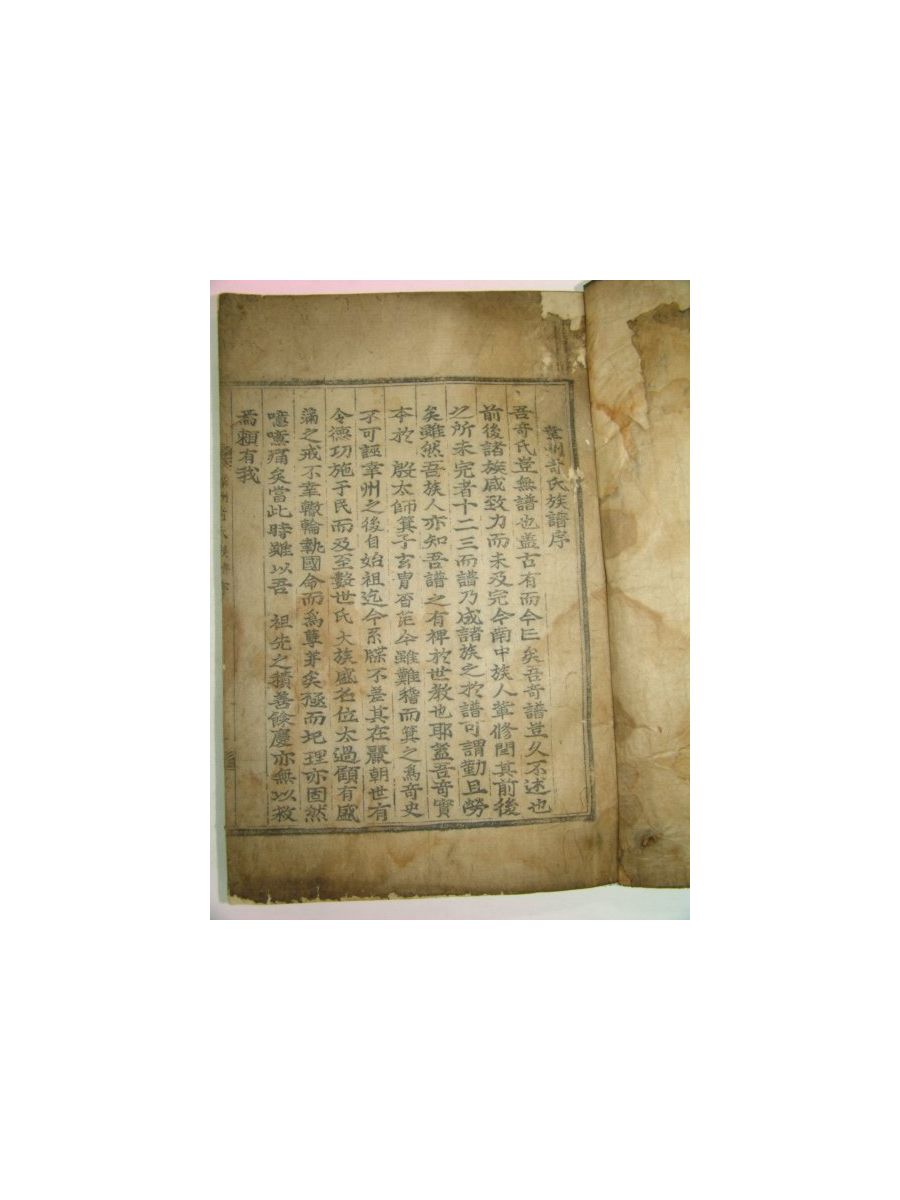 幸州奇氏族譜序
吾奇氏豈無譜也盖古有而今亡矣吾奇譜豈久不述也
前後諸族咸致力而未及完今南中族人輩修閏其前後
之所未完者十二三而譜乃成諸族之於譜可謂勤且勞
矣雖然吾族人亦知吾譜之有裨於世教也耶盖吾奇實
本於 殷太師箕子玄胄昔茫今雖難稽而箕之爲奇史
不可誣幸州之後自始祖迄今系牒不差其在麗朝世有
令德功施于民而及至數世氏大族盛名位太過顧有盛
滿之戒不幸轍輪執國命而爲孽芽矣極而圮理亦固然
噫噫痛矣當此時雖以吾 祖先之積善餘慶亦無以救
焉賴有我